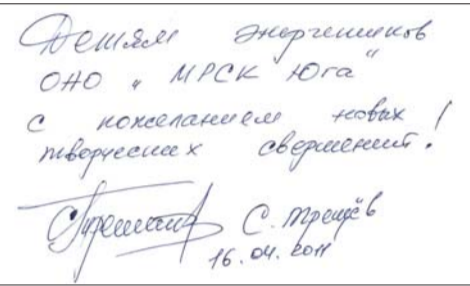 Детям энергетиков
ОАО „МРСК Юга“
с пожеланием новых
творческих свершений!
С. Трещёв
16.04.2011